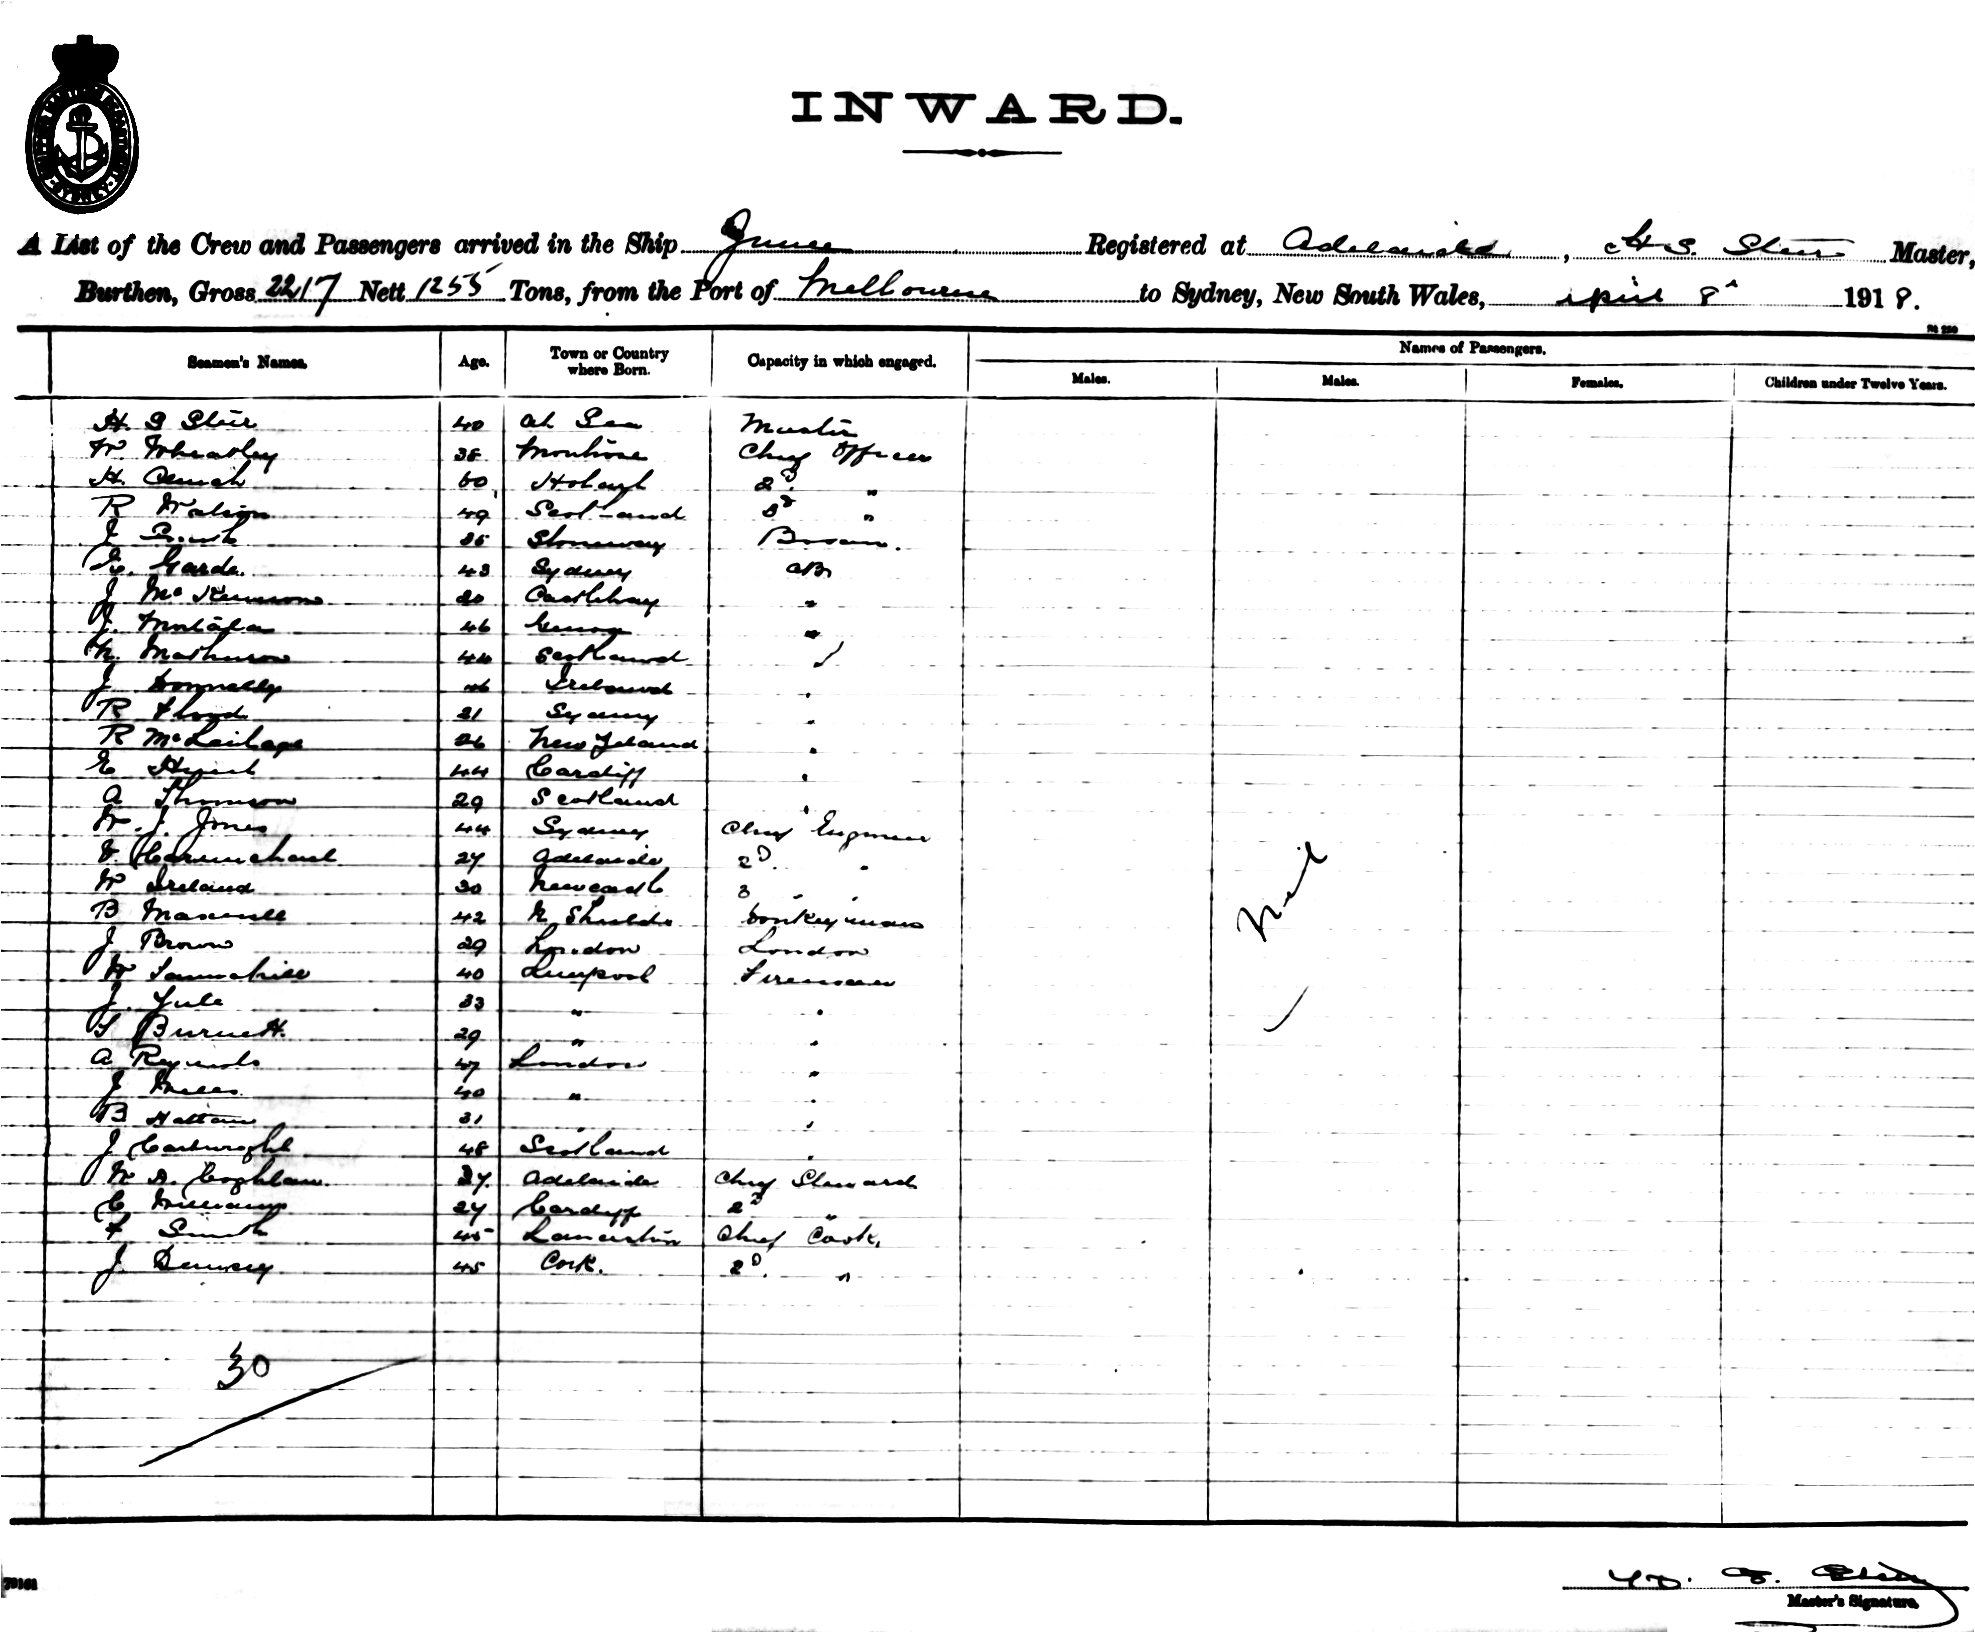 INWARD.
A List of the Crew and Passengers arrived in the Ship Registered at Adelaide, H. S. Master,
Burthen, Gross 2217 Nett 1255 Tons, from the Port of Melbourne to Sydney, New South Wales, April 8 1918.
Names of Passengers.
Seamen's Names. Age. Town or Country where Born. Capacity in which engaged. Males. Males. Females. Children under Twelve Years.
H. S 40 at Sea Master
W Wheatley 38 Montrose Chief Officer
H. 2D "
R Watson 49 Scotland 3D "
J 35 Bosun.
Garde. 43 Sydney AB
J Mc Kinnon 20 Castlebay "
J. 46 "
N. Mathieson 44 Scotland "
J Donnelly 46 Ireland "
R Flood 21 Sydney "
R 26 New Zeland "
E 44 Cardiff "
A Thomson 29 Scotland "
W. J. Jones 44 Sydney Chief Engineer
Carmichael 27 Adelaide 2D. "
W Ireland 30 Newcastle 3 "
B Maxwell 42 N Shields Donkeyman
J Brown 29 London London
W Tannahill 40 Liverpool Fireman
J. Yule 33 " "
Burnett. 29 " "
A Reynolds 47 London "
J 40 " "
B 31 " "
J Cartwright 48 Scotland "
W A. Coghlan. 37. Adelaide Chief Steward
C Williams 27 Cardiff 2D "
F Smith 45 Chief Cook.
J. 45 Cork. 2D. "
Nil
30
79161
Master's Signature.